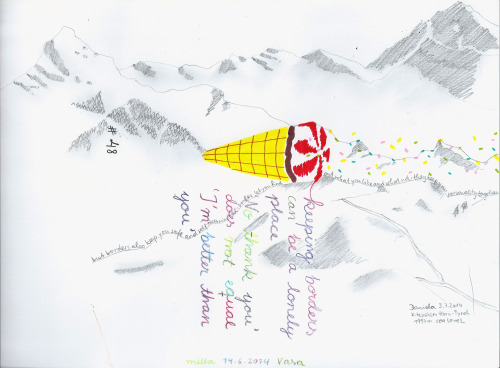 # 48
keeping borders
can be a lonely
place
'no thank you'
does not equal
'I'm better than
you'
but borders also keep you safe and
let you
what you like and what not - they keep you
Daniela 3.7.2014
milla 14.6.2014 Vasa